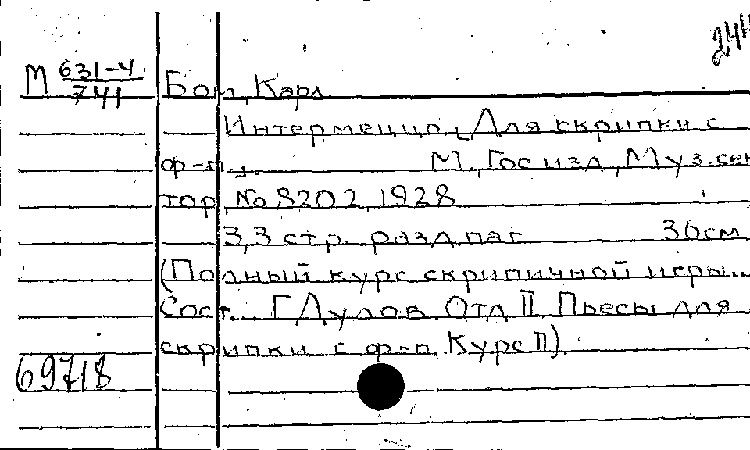 М 631-4/741 Бом, Карл
Интермеццо. [Для скрипки с
ф-п.]. М., Госизд, Муз.сек
тор, No 8202, 1928
3,3 стр. разд. паг. 36см
(Полный курс скрипичной игры...
Сост. Г Дулов. Отд II. Пьесы для
скрипки с ф-п. Курс II).
69718